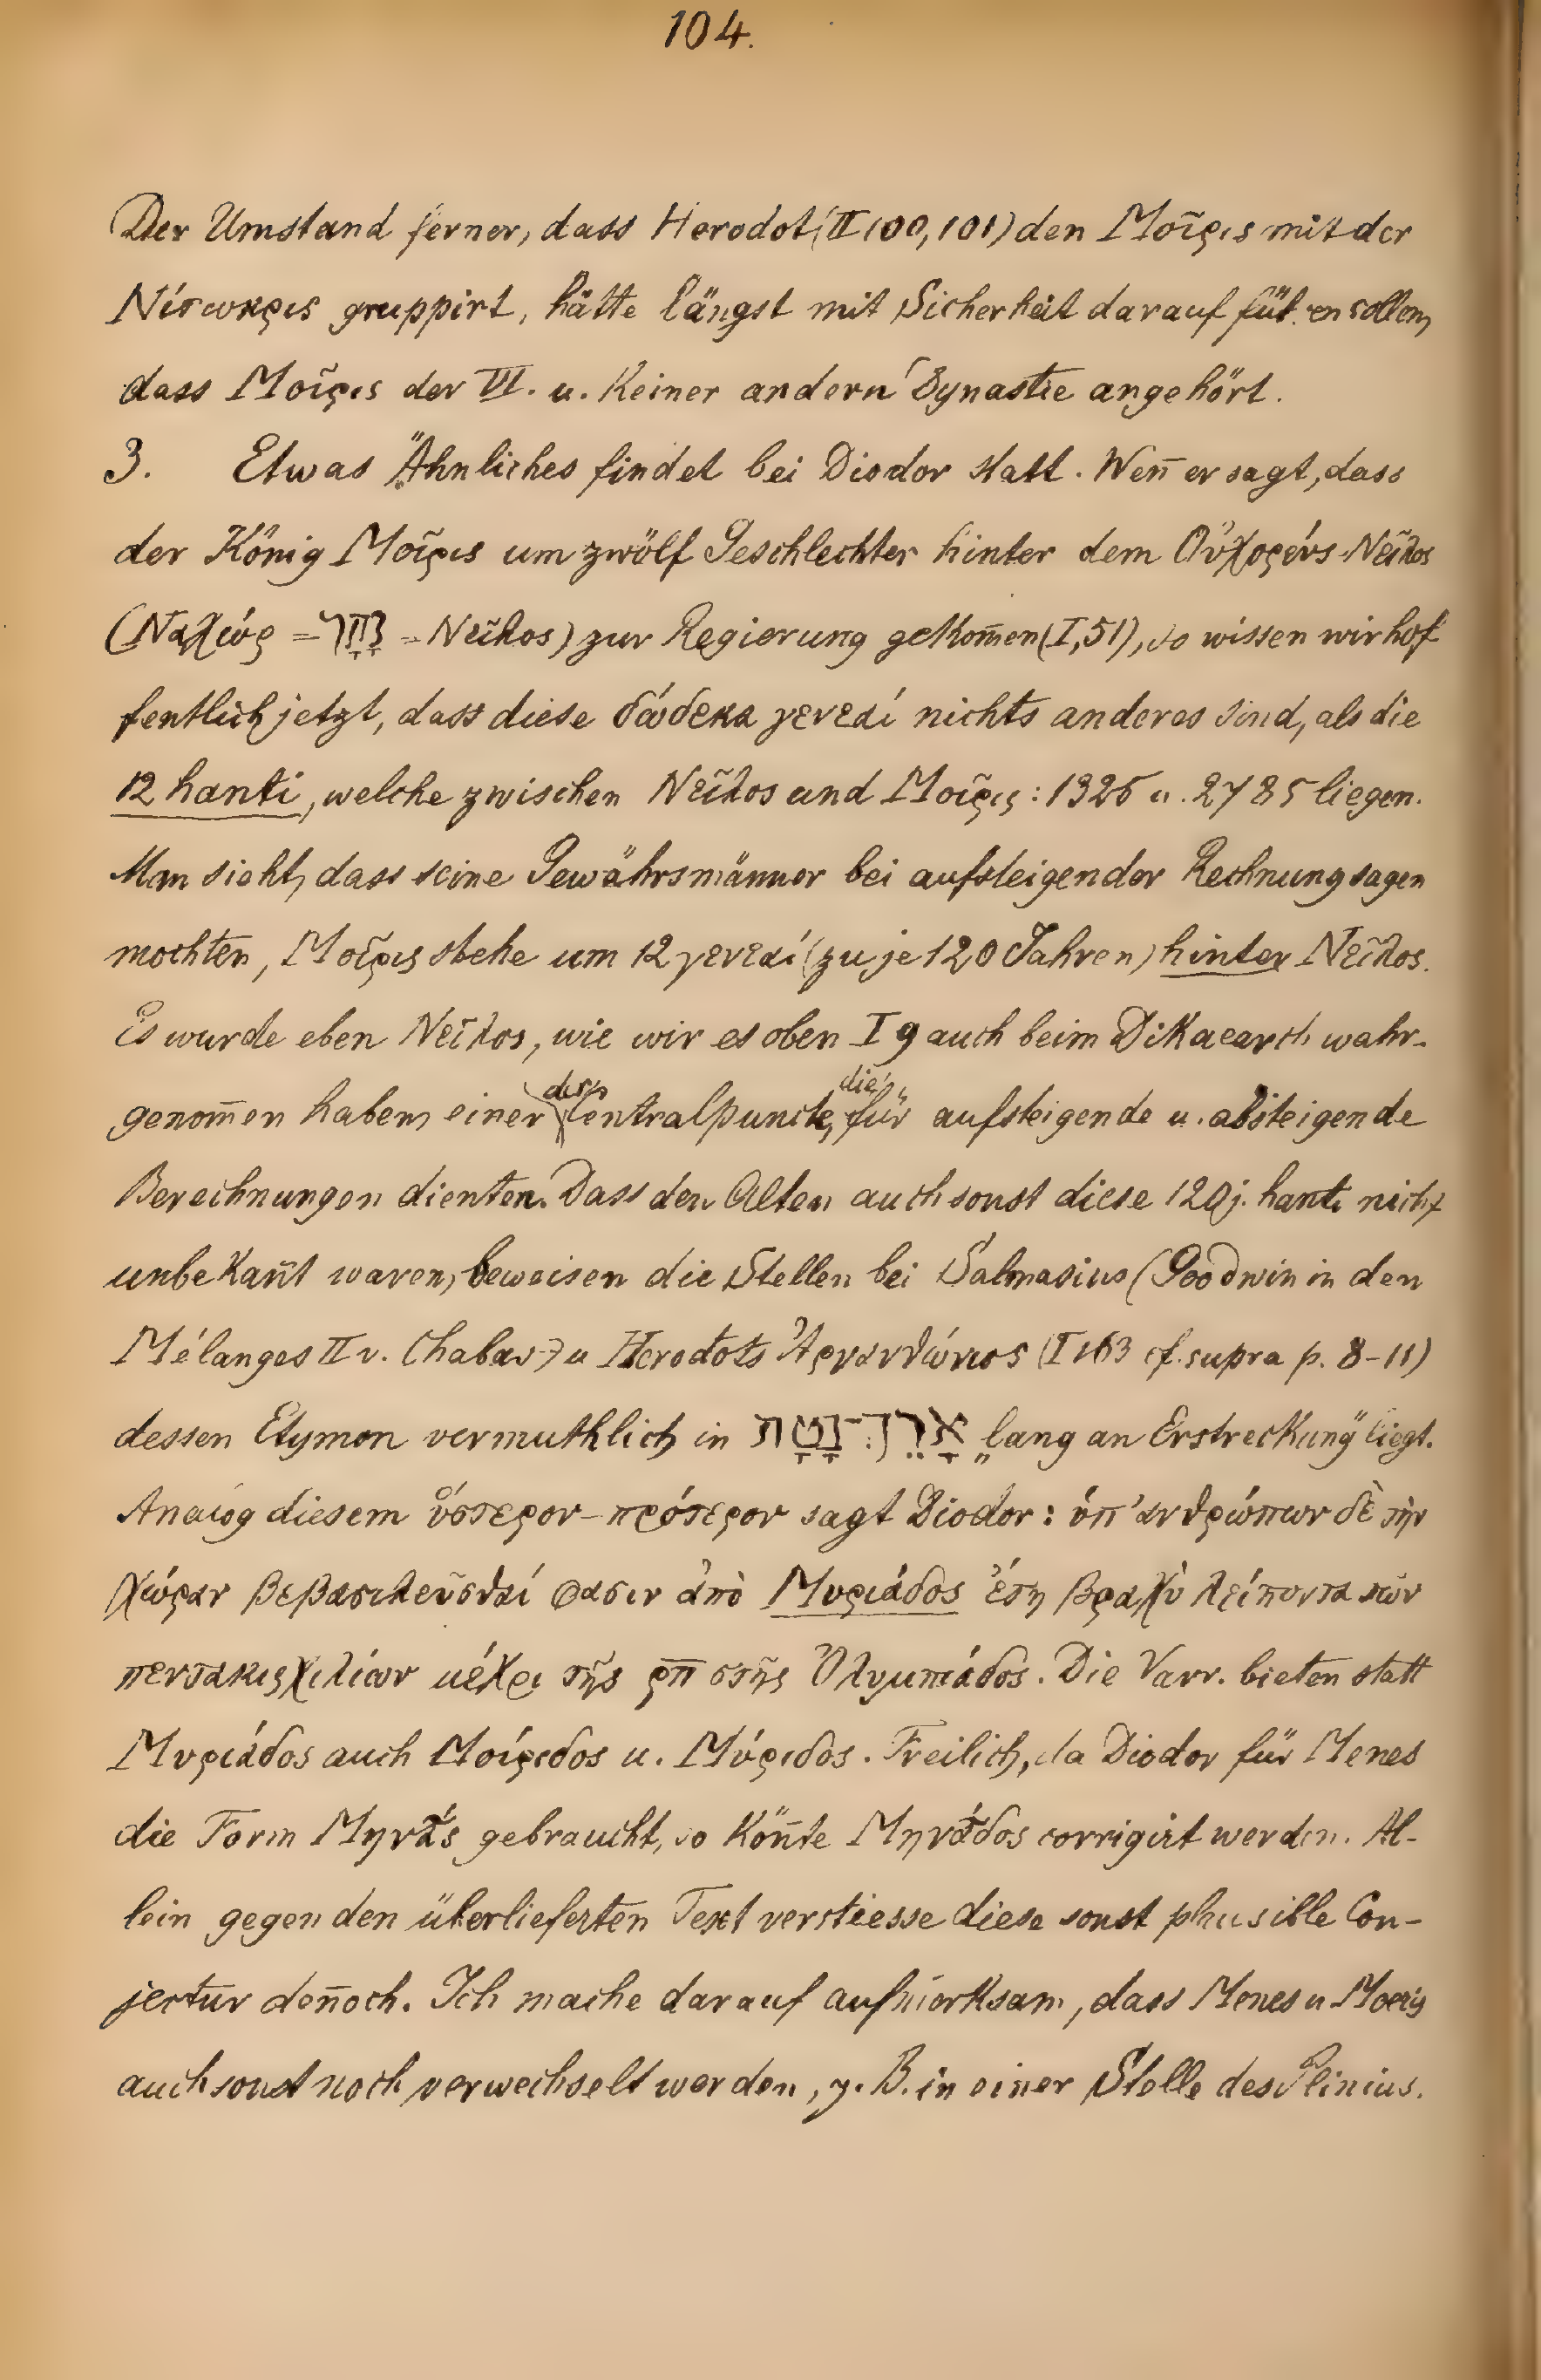 104.
Der Umstand ferner, dass Herodot (II 100, 101) den Μοῖρις mit der
Νίτωκρις gruppirt, hätte längst mit Sicherheit darauf führen sollen,
dass Μοῖρις der VI. u. keiner andern Dynastie angehört.
3. Etwas Ähnliches findet bei Diodor statt. Wen̄ er sagt, dass
der König Μοῖρις um zwölf Geschlechter hinter dem Ὀυχορεύς-Νεῖλος
(Ναχώρ = נָחָר = Νεῖλος) zur Regierung gekom̄en (I, 51), so wissen wir hof
fentlich jetzt, dass diese δώδεκα γενεαί nichts anderes sind, als die
12 hanti, welche zwischen Νεῖλος und Μοῖρις: 1325 u. 2785 liegen.
Man sieht, dass seine Gewährsmänner bei aufsteigender Rechnung sagen
mochten, Μοῖρις stehe um 12 γενεαί (zu je 120 Jahren) hinter Νεῖλος.
Es wurde eben Νεῖλος, wie wir es oben I 9 auch beim Dikaearch wahr-
genom̄en haben, einer der Centralpuncte, die für aufsteigende u. absteigende
Berechnungen dienten. Dass den Alten auch sonst diese 120j. hanti nicht
unbekan̄t waren, beweisen die Stellen bei Salmasius (Goodwin in den
Mélanges II v. Chabas) u Herodots Ἀργανθώνιος (I 163 cf. supra p. 8-11)
dessen Etymon vermuthlich in אָרֵךְ־נָטָת „lang an Erstreckung" liegt.
Analog diesem ὕστερον-πρότερον sagt Diodor: ὑπ' ἀνθρώπων δὲ τὴν
χώραν βεβασιλεῦσθαί φασιν ἀπὸ Μυριάδος ἔτη βραχὺ λείποντα τῶν
πεντακισχιλίων μέχρι τῆς ρπ στῆς Ὀλυμπιάδος. Die Varr. bieten statt
Μυριάδος auch Μοίριδος u. Μύριδος. Freilich, da Diodor für Menes
die Form Μηνᾶς gebraucht, so kön̄te Μηνάδος corrigirt werden. Al-
lein gegen den überlieferten Text verstiesse diese sonst plausible Con-
jectur den̄och. Ich mache darauf aufmerksam, dass Menes u Moeris
auch sonst noch verwechselt werden, z. B. in einer Stelle des Plinius.